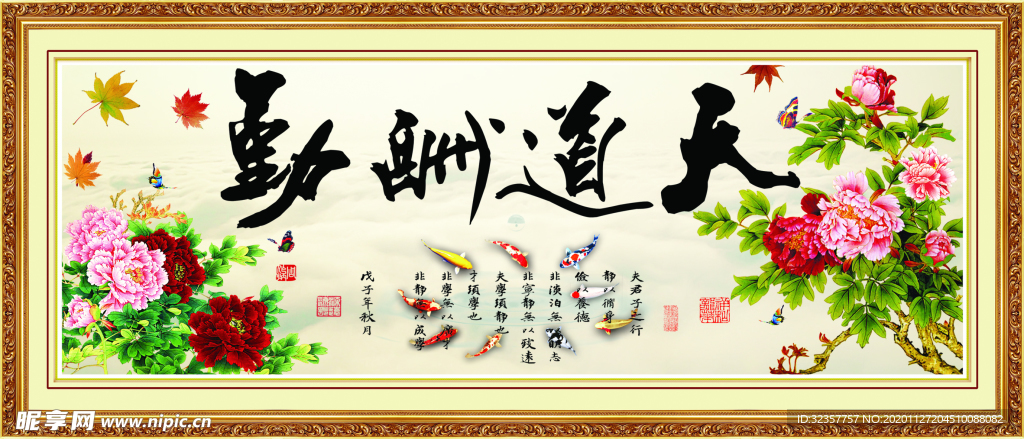 天道酬勤
夫君子之行
静以修身
俭以養德
非淡泊無以明志
非寧静無以致遠
夫學須静也
才須學也
非學無以
非静無以成學
戊子年秋月
昵享网 www.nipic.cn
ID:32357757 NO:20201127204510088082